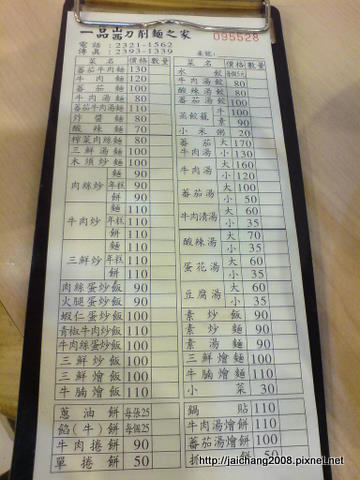 一品山西刀削麵之家
095528
電話:2321-1562
傳真:2393-1339
菜名 價格 數量
番茄牛肉麵 130
牛肉麵 120
番茄麵 100
牛肉湯麵 80
番茄牛肉湯麵 110
炸醬麵 80
酸辣麵 70
榨菜肉絲麵 80
三鮮湯麵 100
木須炒麵 100
肉絲炒 麵 90
年糕 90
餅 90
牛肉炒 麵 110
年糕 110
餅 110
三鮮炒 麵 110
年糕 110
餅 110
肉絲蛋炒飯 90
火腿蛋炒飯 90
蝦仁蛋炒飯 100
青椒牛肉炒飯 110
牛肉絲蛋炒飯 100
三鮮炒飯 100
三鮮燴飯 100
牛腩燴飯 110
蔥油餅 每張25
餡(牛)餅 每個25
牛肉捲餅 90
單捲餅 50
菜名 價格 數量
水餃
牛肉湯餃 80
酸辣湯餃 80
番茄湯餃 100
蒸餃籠 牛 80
素 90
小米粥 20
番茄牛肉湯 大 170
小 130
牛肉湯 大 160
小 120
番茄湯 大 100
小 50
牛肉清湯 大 60
小 35
酸辣湯 大 70
小 35
蛋花湯 大 60
小 35
豆腐湯 大 60
小 35
素炒飯 90
素炒麵 90
素湯麵 90
三鮮燴麵 100
牛腩燴麵 110
小菜 30
鍋貼 110
牛肉湯燴餅 110
番茄湯燴餅 100
50
http://jaichang2008.pixnet.net